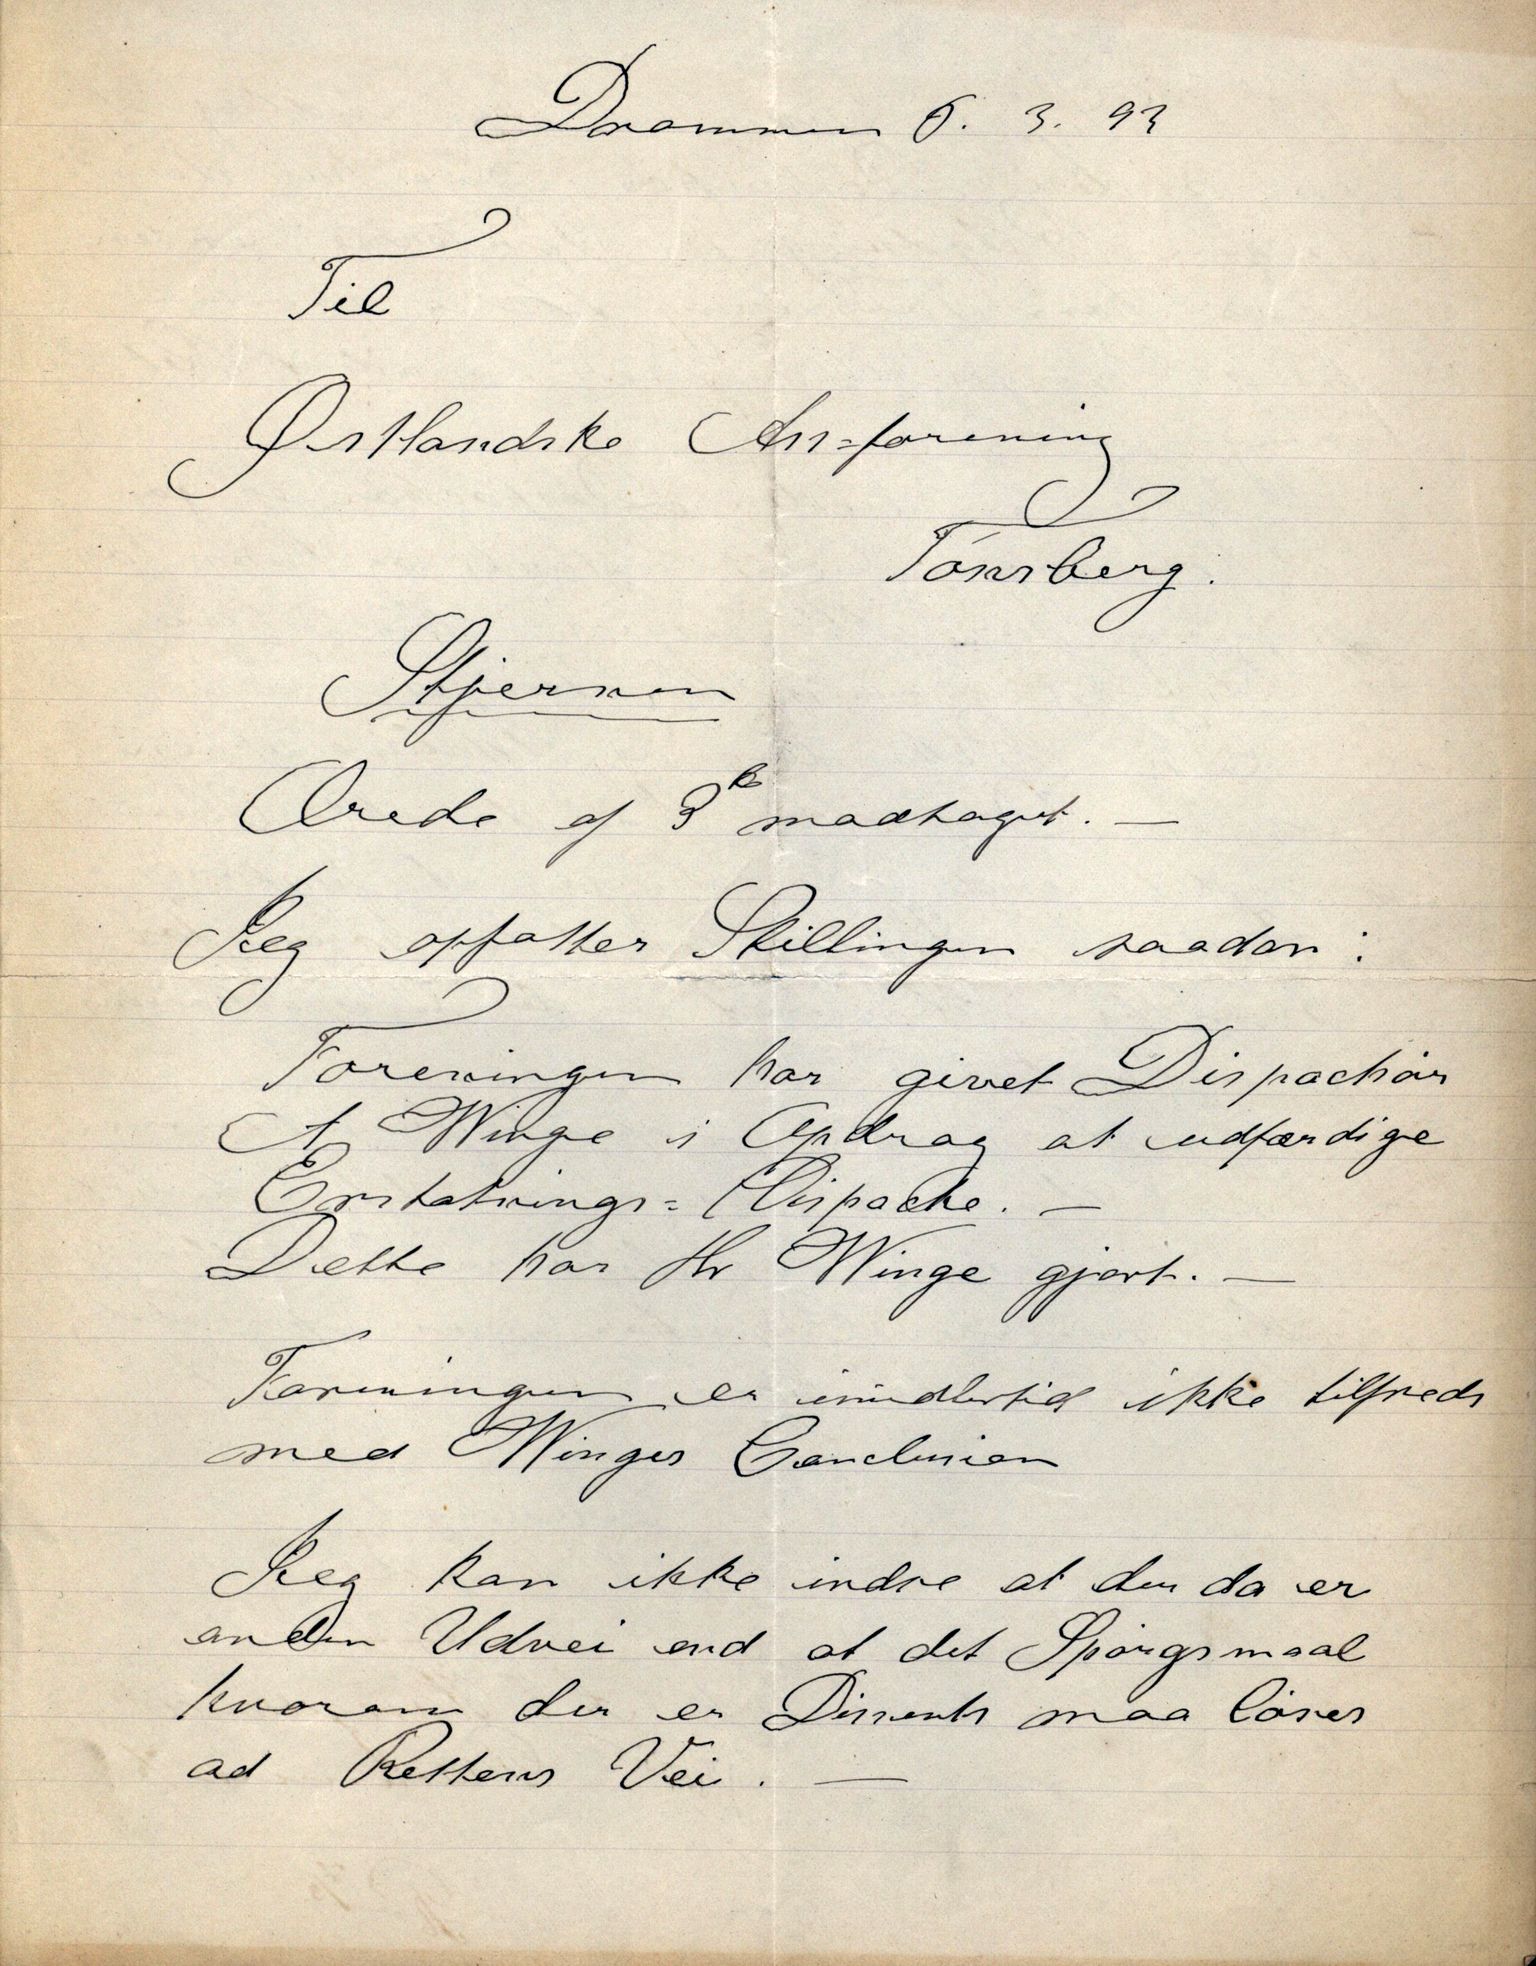 Drammen 6. 3. 93
Til
Østlandske Ass=forening
Tönsberg.
Stjernen
Ærede af 3 modtaget. —
Jeg opfatter Stillingen saadan:
Foreningen har givet Dispachör
A Winge i Opdrag at udfærdige
Erstatnings=Dispache. —
Dette har Hr Winge gjort. —
Foreningen er imidlertid ikke tilfreds
med Winges Conclusion
Jeg kan ikke indse at der da er
anden Udvei end at det Spörgsmaal
hvorom der er Dissents maa löses
ad Rettens Vei. —